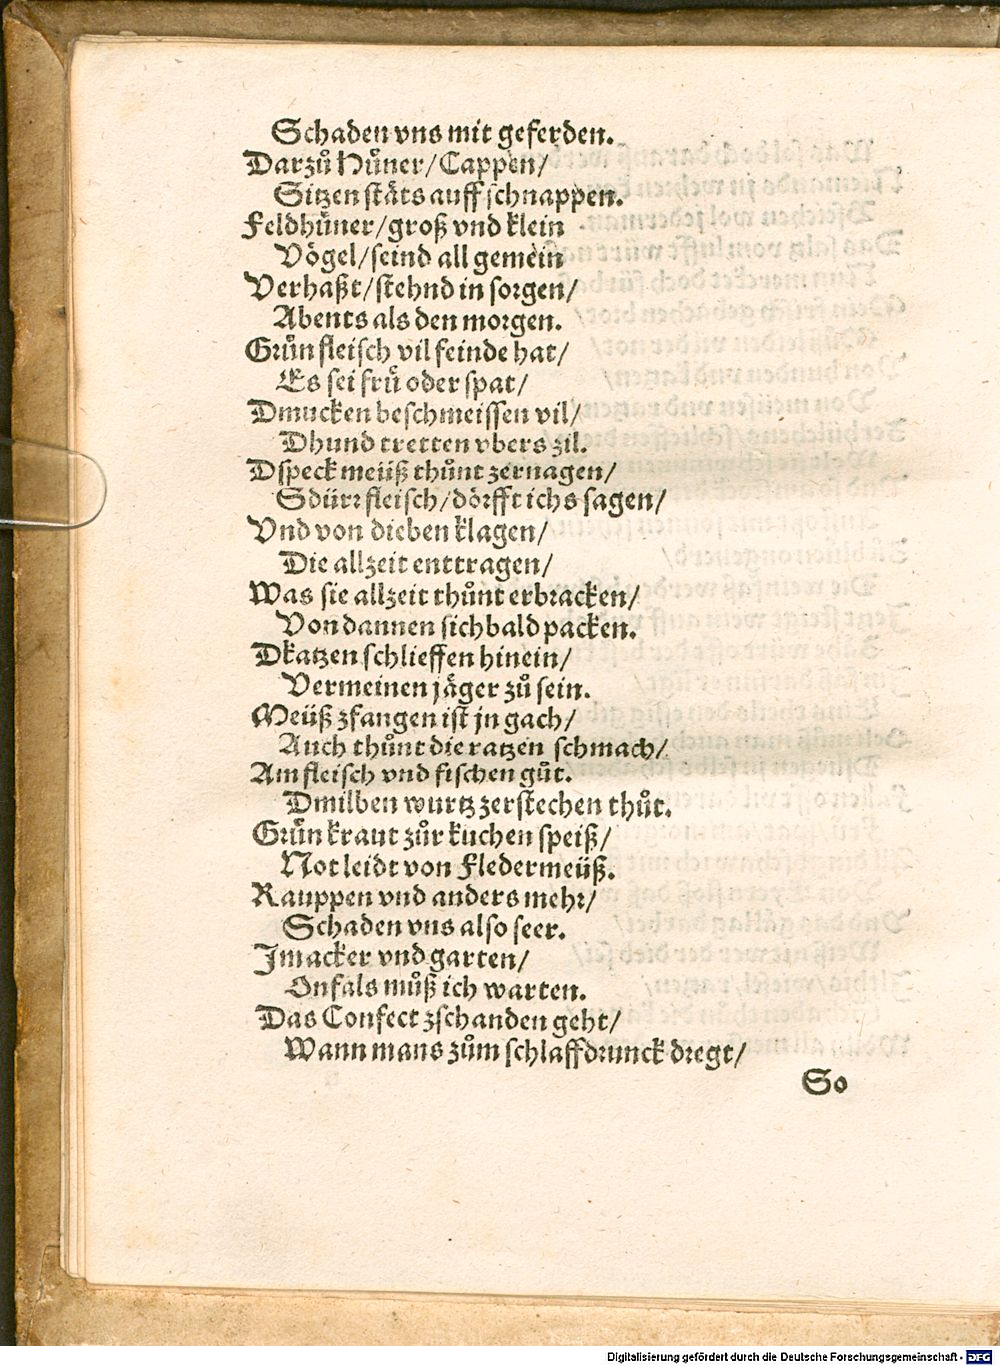 Schaden vns mit geferden.
Darzů Hůner/Cappen/
Sitzen stäts auff schnappen.
Feldhüner/groß vnd klein
Vögel/seind all gemein
Verhaßt/stehnd in sorgen/
Abents als den morgen.
Grůn fleisch vil feinde hat/
Es sei frü oder spat/
Dmucken beschmeissen vil/
Dhund tretten vbers zil.
Dspeck meüß thůnt zernagen/
Sdürr fleisch/dörfft ichs sagen/
Vnd von dieben klagen/
Die allzeit enttragen/
Was sie allzeit thůnt erbracken/
Von dannen sich bald packen.
Dkatzen schlieffen hinein/
Vermeinen jäger zů sein.
Meüß zfangen ist jn gach/
Auch thůnt die ratzen schmach/
Am fleisch vnd fischen gůt.
Dmilben wurtz zerstechen thůt.
Grůn kraut zůr kuchen speiß/
Not leidt von Fledermeüß.
Rauppen vnd anders mehr/
Schaden vns also seer.
Jm acker vnd garten/
Onfals můß ich warten.
Das Confect zschanden geht/
Wann mans zům schlaffdrunck dregt/
So
Digitalisierung gefördert durch die Deutsche Forschungsgemeinschaft - DFG